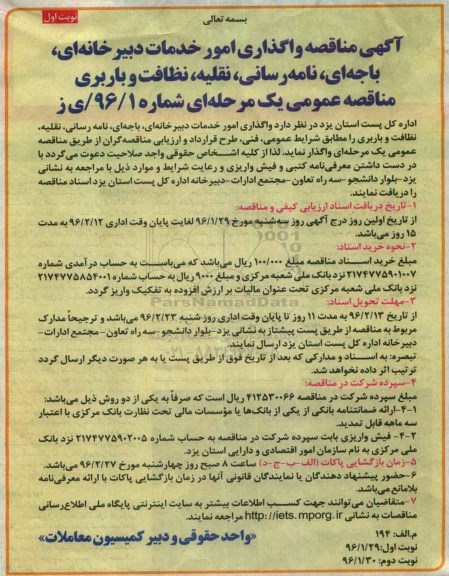 بسمه تعالی
نوبت اول
آگهی مناقصه واگذاری امور خدمات دبیرخانه‌ای،
باجه‌ای، نامه‌رسانی، نقلیه، نظافت و باربری
مناقصه عمومی یک مرحله‌ای شماره ۹۶/۱/ی ز
اداره کل پست استان یزد در نظر دارد واگذاری امور خدمات دبیرخانه‌ای، باجه‌ای، نامه رسانی، نقلیه،
نظافت و باربری را مطابق شرایط عمومی، فنی، طرح قرارداد و ارزیابی مناقصه‌گران از طریق مناقصه
عمومی یک مرحله‌ای واگذار نماید. لذا از کلیه اشخاص حقوقی واجد صلاحیت دعوت می‌گردد با
در دست داشتن معرفی‌نامه کتبی و فیش واریزی و رعایت شرایط و موارد ذیل با مراجعه به نشانی
یزد-بلوار دانشجو-سه راه تعاون-مجتمع ادارات-دبیرخانه اداره کل پست استان یزد اسناد مناقصه
را دریافت نمایند.
۱-تاریخ دریافت اسناد ارزیابی کیفی و مناقصه:
از تاریخ اولین روز درج آگهی روز سه‌شنبه مورخ ۹۶/۱/۲۹ لغایت پایان وقت اداری ۹۶/۲/۱۲ به مدت
۱۵ روز می‌باشد.
۲-نحوه خرید اسناد:
مبلغ خرید اسناد مناقصه مبلغ ۱۰۰/۰۰۰ ریال می‌باشد که می‌بایست به حساب درآمدی شماره
۲۱۷۴۷۷۵۹۰۱۰۰۷ نزد بانک ملی شعبه مرکزی و مبلغ ۹۰۰۰ ریال به حساب شماره ۲۱۷۴۷۷۵۸۵۴۰۰۱
نزد بانک ملی شعبه مرکزی تحت عنوان مالیات بر ارزش افزوده به تفکیک واریز گردد.
۳-مهلت تحویل اسناد:
از تاریخ ۹۶/۲/۱۳ به مدت ۱۱ روز تا پایان وقت اداری روز شنبه ۹۶/۲/۲۳ می‌باشد و ترجیحاً مدارک
مربوط به مناقصه از طریق پست پیشتاز به نشانی یزد-بلوار دانشجو-سه راه تعاون-مجتمع ادارات-
دبیرخانه اداره کل پست استان یزد ارسال نمایند.
تبصره: به اسناد و مدارکی که بعد از تاریخ فوق از طریق پست یا به هر صورت دیگر ارسال گردد
ترتیب اثر داده نخواهد شد.
۴-سپرده شرکت در مناقصه:
مبلغ سپرده شرکت در مناقصه ۴۱۲۵۳۰۰۶۶ ریال است که صرفاً به یکی از دو روش ذیل می‌باشد:
۴-۱-ارائه ضمانتنامه بانکی از یکی از بانک‌ها یا مؤسسات مالی تحت نظارت بانک مرکزی با اعتبار
سه ماهه قابل تمدید.
۴-۲- فیش واریزی بابت سپرده شرکت در مناقصه به حساب شماره ۲۱۷۴۷۷۵۹۰۲۰۰۵ نزد بانک
ملی مرکزی به نام سازمان امور اقتصادی و دارایی استان یزد.
۵-زمان بازگشایی پاکات (الف-ب-ج-د) ساعت ۸ صبح روز چهارشنبه مورخ ۹۶/۲/۲۷ می‌باشد.
۶-حضور پیشنهاد دهندگان یا نمایندگان قانونی آنها در زمان بازگشایی پاکات با ارائه معرفی‌نامه
بلامانع می‌باشد.
۷-متقاضیان می‌توانند جهت کسب اطلاعات بیشتر به سایت اینترنتی پایگاه ملی اطلاع‌رسانی
مناقصات به نشانی http://iets.mporg.ir مراجعه نمایند.
م.الف: ۱۹۴
نوبت اول: ۹۶/۱/۲۹
نوبت دوم: ۹۶/۱/۳۰
«واحد حقوقی و دبیر کمیسیون معاملات»
ParsNamadData